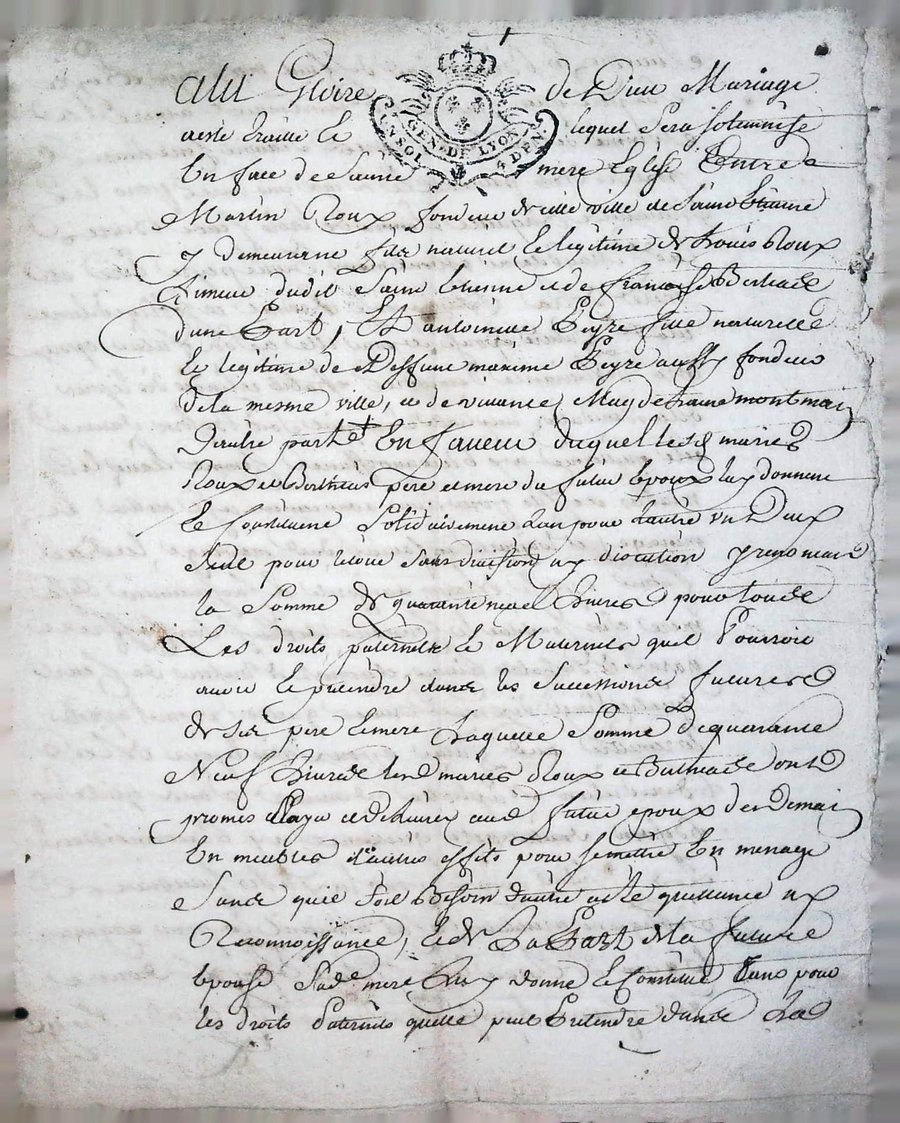 ala Gloire de Dieu Mariage
a esté traitté le lequel sera solemnisé
GEN. DE LYON
UN SOL 4 DEN.
En face de Sainte mere Eglise Entre
Martin Roux fondeur de cette ville de Saint Etienne
y demeurant fils naturel et legitime de Louis Roux
dudit Saint Etienne et de françoise
d'une Part, Et antoinette Peyre fille naturelle
et legitime de Deffunt maxime Peyre aussy fondeur
de la mesme ville, et de vivante Magdelaine montmain
D'autre part En faveur duquel lesd mariés
Roux et pere et mere du futur Epoux luy donnent
et Constituent Solidairement l'un pour l'autre un Deux
Seul pour le tout sans division ny discution y renonceant
la Somme de quarante neuf Livres pour tous
Les droits paternels et Maternels quil Pourroit
avoir et pretendre dans les Successions futures
de ses pere et mere Laquelle Somme de quarante
Neuf Livres lesd mariés Roux et ont
promis Payer et délivrer aud futur epoux dez Demain
En meubles et autres effets pour se mettre En menage
Sans quil soit Besoin d'autre acte quittance ny
Reconnoissance, et de La Part de la future
Epouse Sade mere Luy donne et Constitue Tant pour
les droits Paternels quelle peut Pretendre dans La